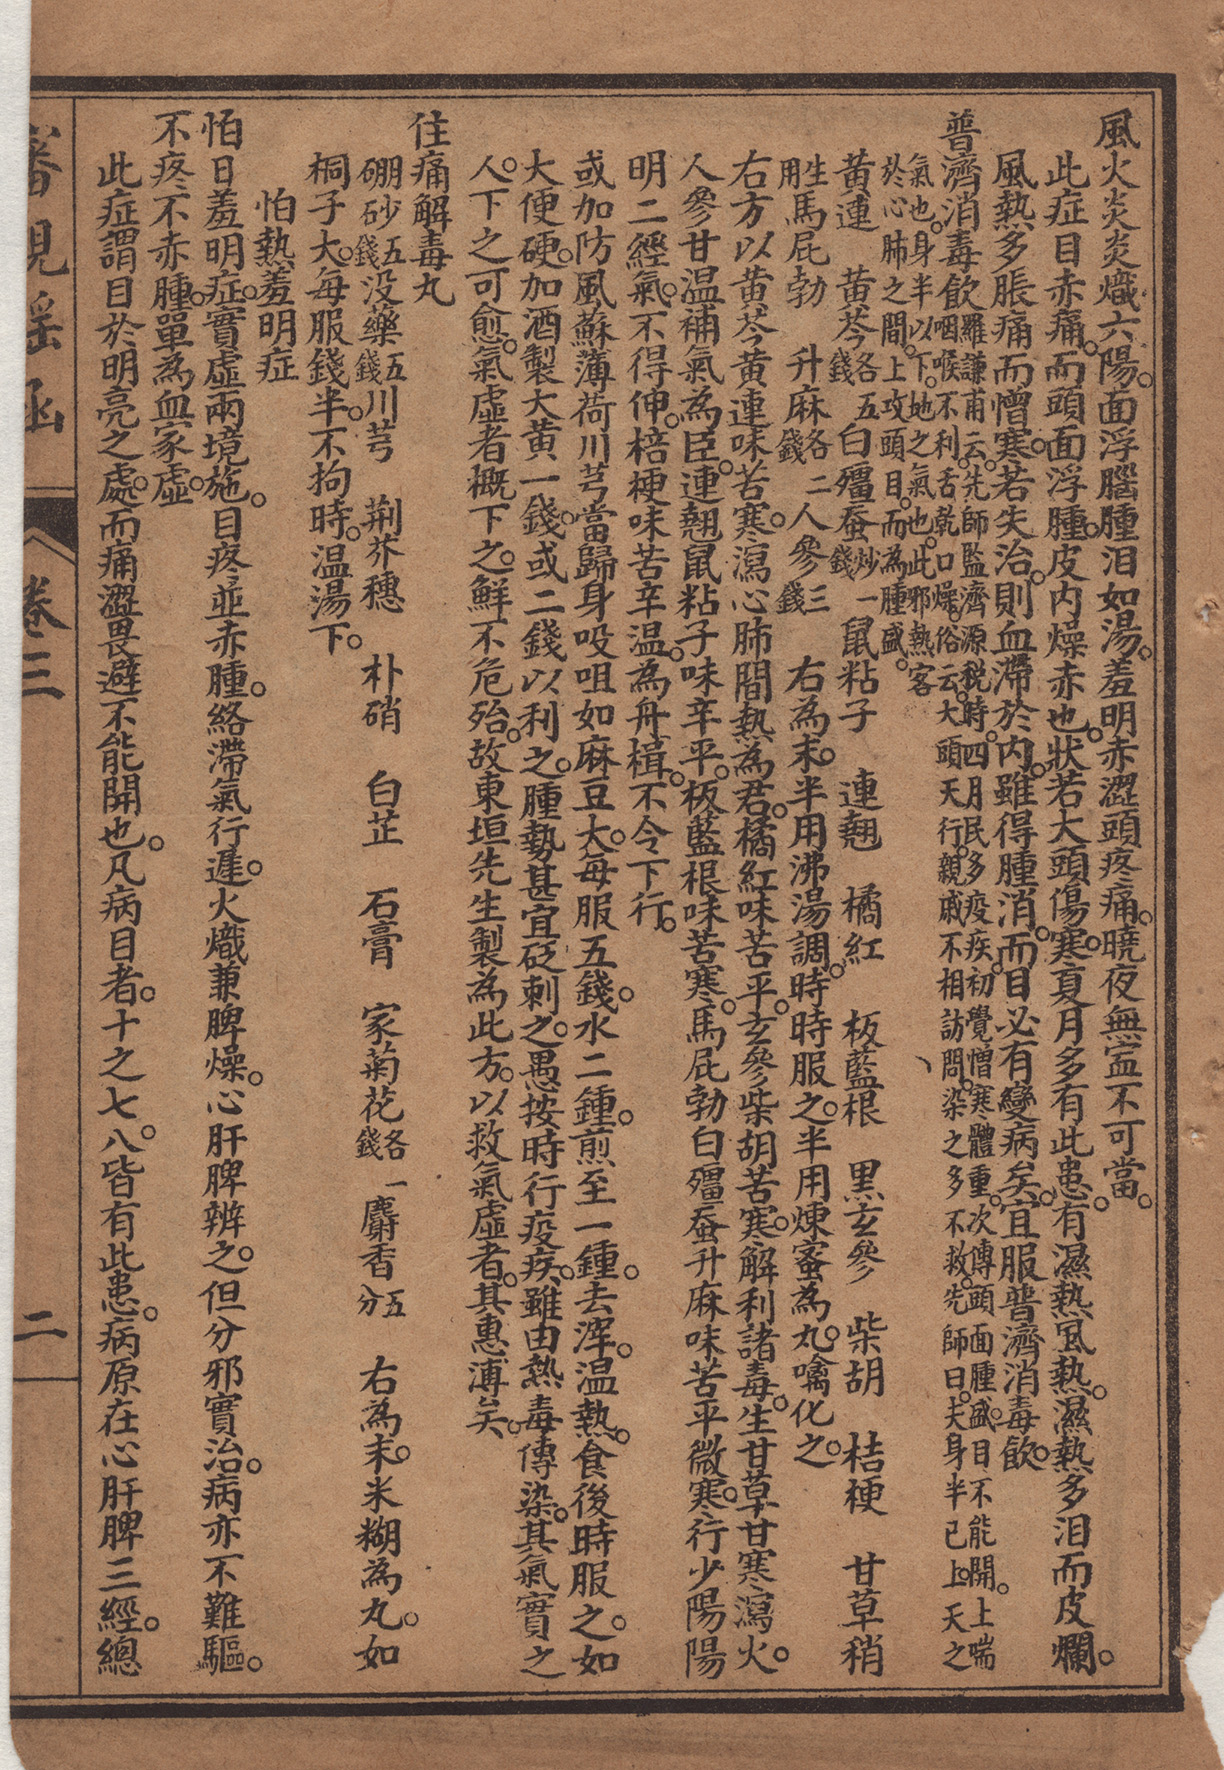 風火炎炎熾六陽。面浮腦腫泪如湯。羞明赤澀頭疼痛。曉夜無寍不可當。
此症目赤痛。而頭面浮腫。皮内燥赤也。狀若大頭傷寒。夏月多有此患。有濕熱風熱。濕熱多泪而皮爛。
風熱多脹痛而憎寒。若失治。則血滯於内。雖得腫消。而目必有變病矣。宜服普濟消毒飲。
普濟消毒飲
羅謙甫云。先師監濟源税時。四月民多疫疾。初覺憎寒體重。次傳頭面腫盛。目不能開。上喘
咽喉不利。舌乾口燥。俗云。大頭天行。親戚不相訪問。染之多不救。先師曰。夫身半已上。天之
氣也。身半以下。地之氣也。此邪熱客
於心肺之間。上攻頭目。而為腫盛。
黄連　黄芩各五錢　白殭蚕炒一錢　鼠粘子　連翹　橘紅　板藍根　黑玄參　柴胡　桔梗　甘草稍
生用　馬屁勃　升麻各二錢　人參三錢　右為末。半用沸湯調。時時服之。半用煉蜜為丸。噙化之。
右方以黄芩黄連味苦寒。瀉心肺間熱為君。橘紅味苦平。玄參柴胡苦寒。解利諸毒。生甘草甘寒瀉火。
人參甘温補氣為臣。連翹鼠粘子味辛平。板藍根味苦寒。馬屁勃白殭蚕升麻味苦平微寒。行少陽陽
明二經氣。不得伸。桔梗味苦辛温。為舟楫。不令下行。
或加防風蘇薄荷川芎當歸身㕮咀如麻豆大。每服五錢。水二鍾。煎至一鍾。去滓。温熱。食後時服之。如
大便硬。加酒製大黄一錢。或二錢以利之。腫勢甚宜砭刺之。愚按時行疫疾。雖由熱毒傳染。其氣實之
人。下之可愈。氣虛者概下之。鮮不危殆。故東垣先生製為此方。以救氣虛者。其惠溥矣。
住痛解毒丸
硼砂五錢　没藥五錢　川芎　荆芥穗　朴硝　白芷　石膏　家菊花各一錢　麝香五分　右為末。米糊為丸。如
桐子大。每服錢半。不拘時。温湯下。
怕熱羞明症
怕日羞明症。實虛兩境施。目疼並赤腫。絡滯氣行遲。火熾兼脾燥。心肝脾辨之。但分邪實治。病亦不難驅。
不疼不赤腫。單為血家虛。
此症謂目於明亮之處。而痛澀畏避不能開也。凡病目者。十之七八。皆有此患。病原在心肝脾三經。總
審視瑤函
卷三
二